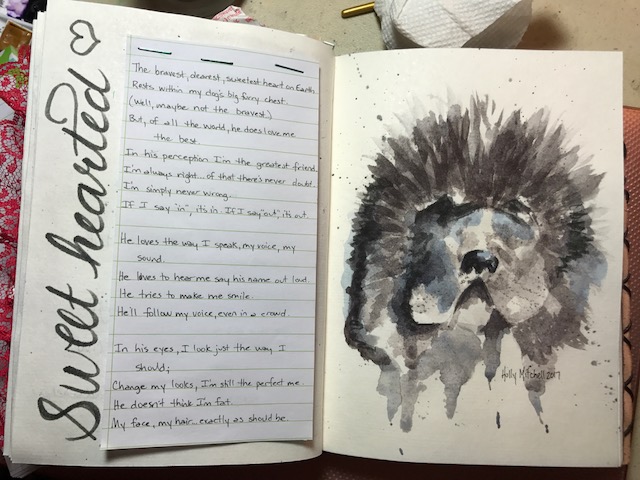 Sweet hearted
The bravest, dearest, sweetest heart on Earth
Rests within my dog's big furry chest.
(Well, maybe not the bravest.)
But, of all the world, he does love me
the best.
In his perception I'm the greatest friend.
I'm always right...of that there's never doubt.
I'm simply never wrong.
If I say "in", it's in. If I say "out", it's out.
He loves the way I speak, my voice, my
sound.
He loves to hear me say his name out loud.
He tries to make me smile.
He'll follow my voice, even in a crowd.
In his eyes, I look just the way I
should;
Change my looks, I'm still the perfect me.
He doesn't think I'm fat.
My face, my hair...exactly as should be.
Holly Mitchell 2017